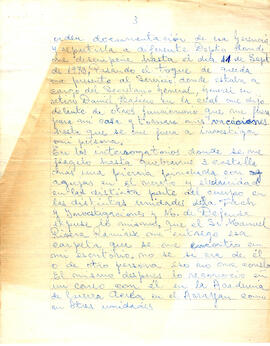 3
orden documentación de la Gerencia
y repartirla a diferente Depto donde
me desempeñe hasta el día 11 de Sept
de 1973, cuando el toque de queda
me presente al Servicio donde estaba a
cargo del Secretario General, General en
retiro en la cual me dijo
delante de otros funcionario que me fuera
para mi casa y tomara mis vacaciones
hasta que se me fuera a investigar
mi persona.
En los interrogatorios donde se me
flagelo hasta quebrarme 3 costilla
mas una pierna pinchada con
agujas en el cuerpo y electricidad
en las distinta parte del cuerpo en
las distintas unidades de la Fach
y Investigaciones y Mo. de Defensa
expuse lo mismo, que el Sr Manuel
Ramirez me entrego esa
carpeta que se me encontro en
mi escritorio, no se si era de él
o de otra persona. Eso no me consta
El mismo despues lo reconocio en
un careo con él en la Academia
de Guerra Aerea, en el como
en otras unidades